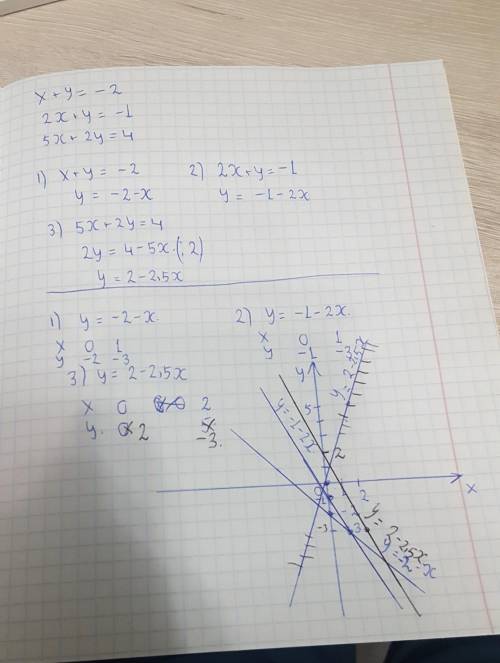 x + y = -2
2x + y = -1
5x + 2y = 4
1) x + y = -2 2) 2x + y = -1
y = -2 - x y = -1 - 2x
3) 5x + 2y = 4
2y = 4 - 5x (: 2)
y = 2 - 2,5x
1) y = -2 - x. 2) y = -1 - 2x.
x 0 1 x 0 1
y -2 -3 y -1 -3
3) y = 2 - 2,5x
x 0 2
y. 2 -3.
y
5
2
0 2
x
-3
y = -1 - 2x
y = 2 - 2,5x
y = 2 - 2,5x
y = -2 - x